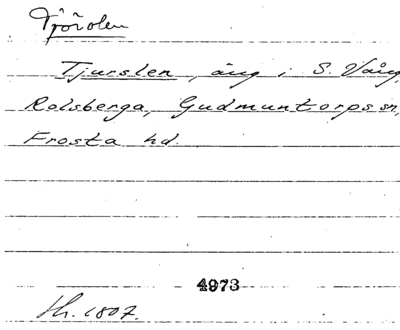 Tjurslen, äng i S. Vång,
Rolsberga, Gudmuntorps sn,
Frosta hd.
4973
Sk. 1807.